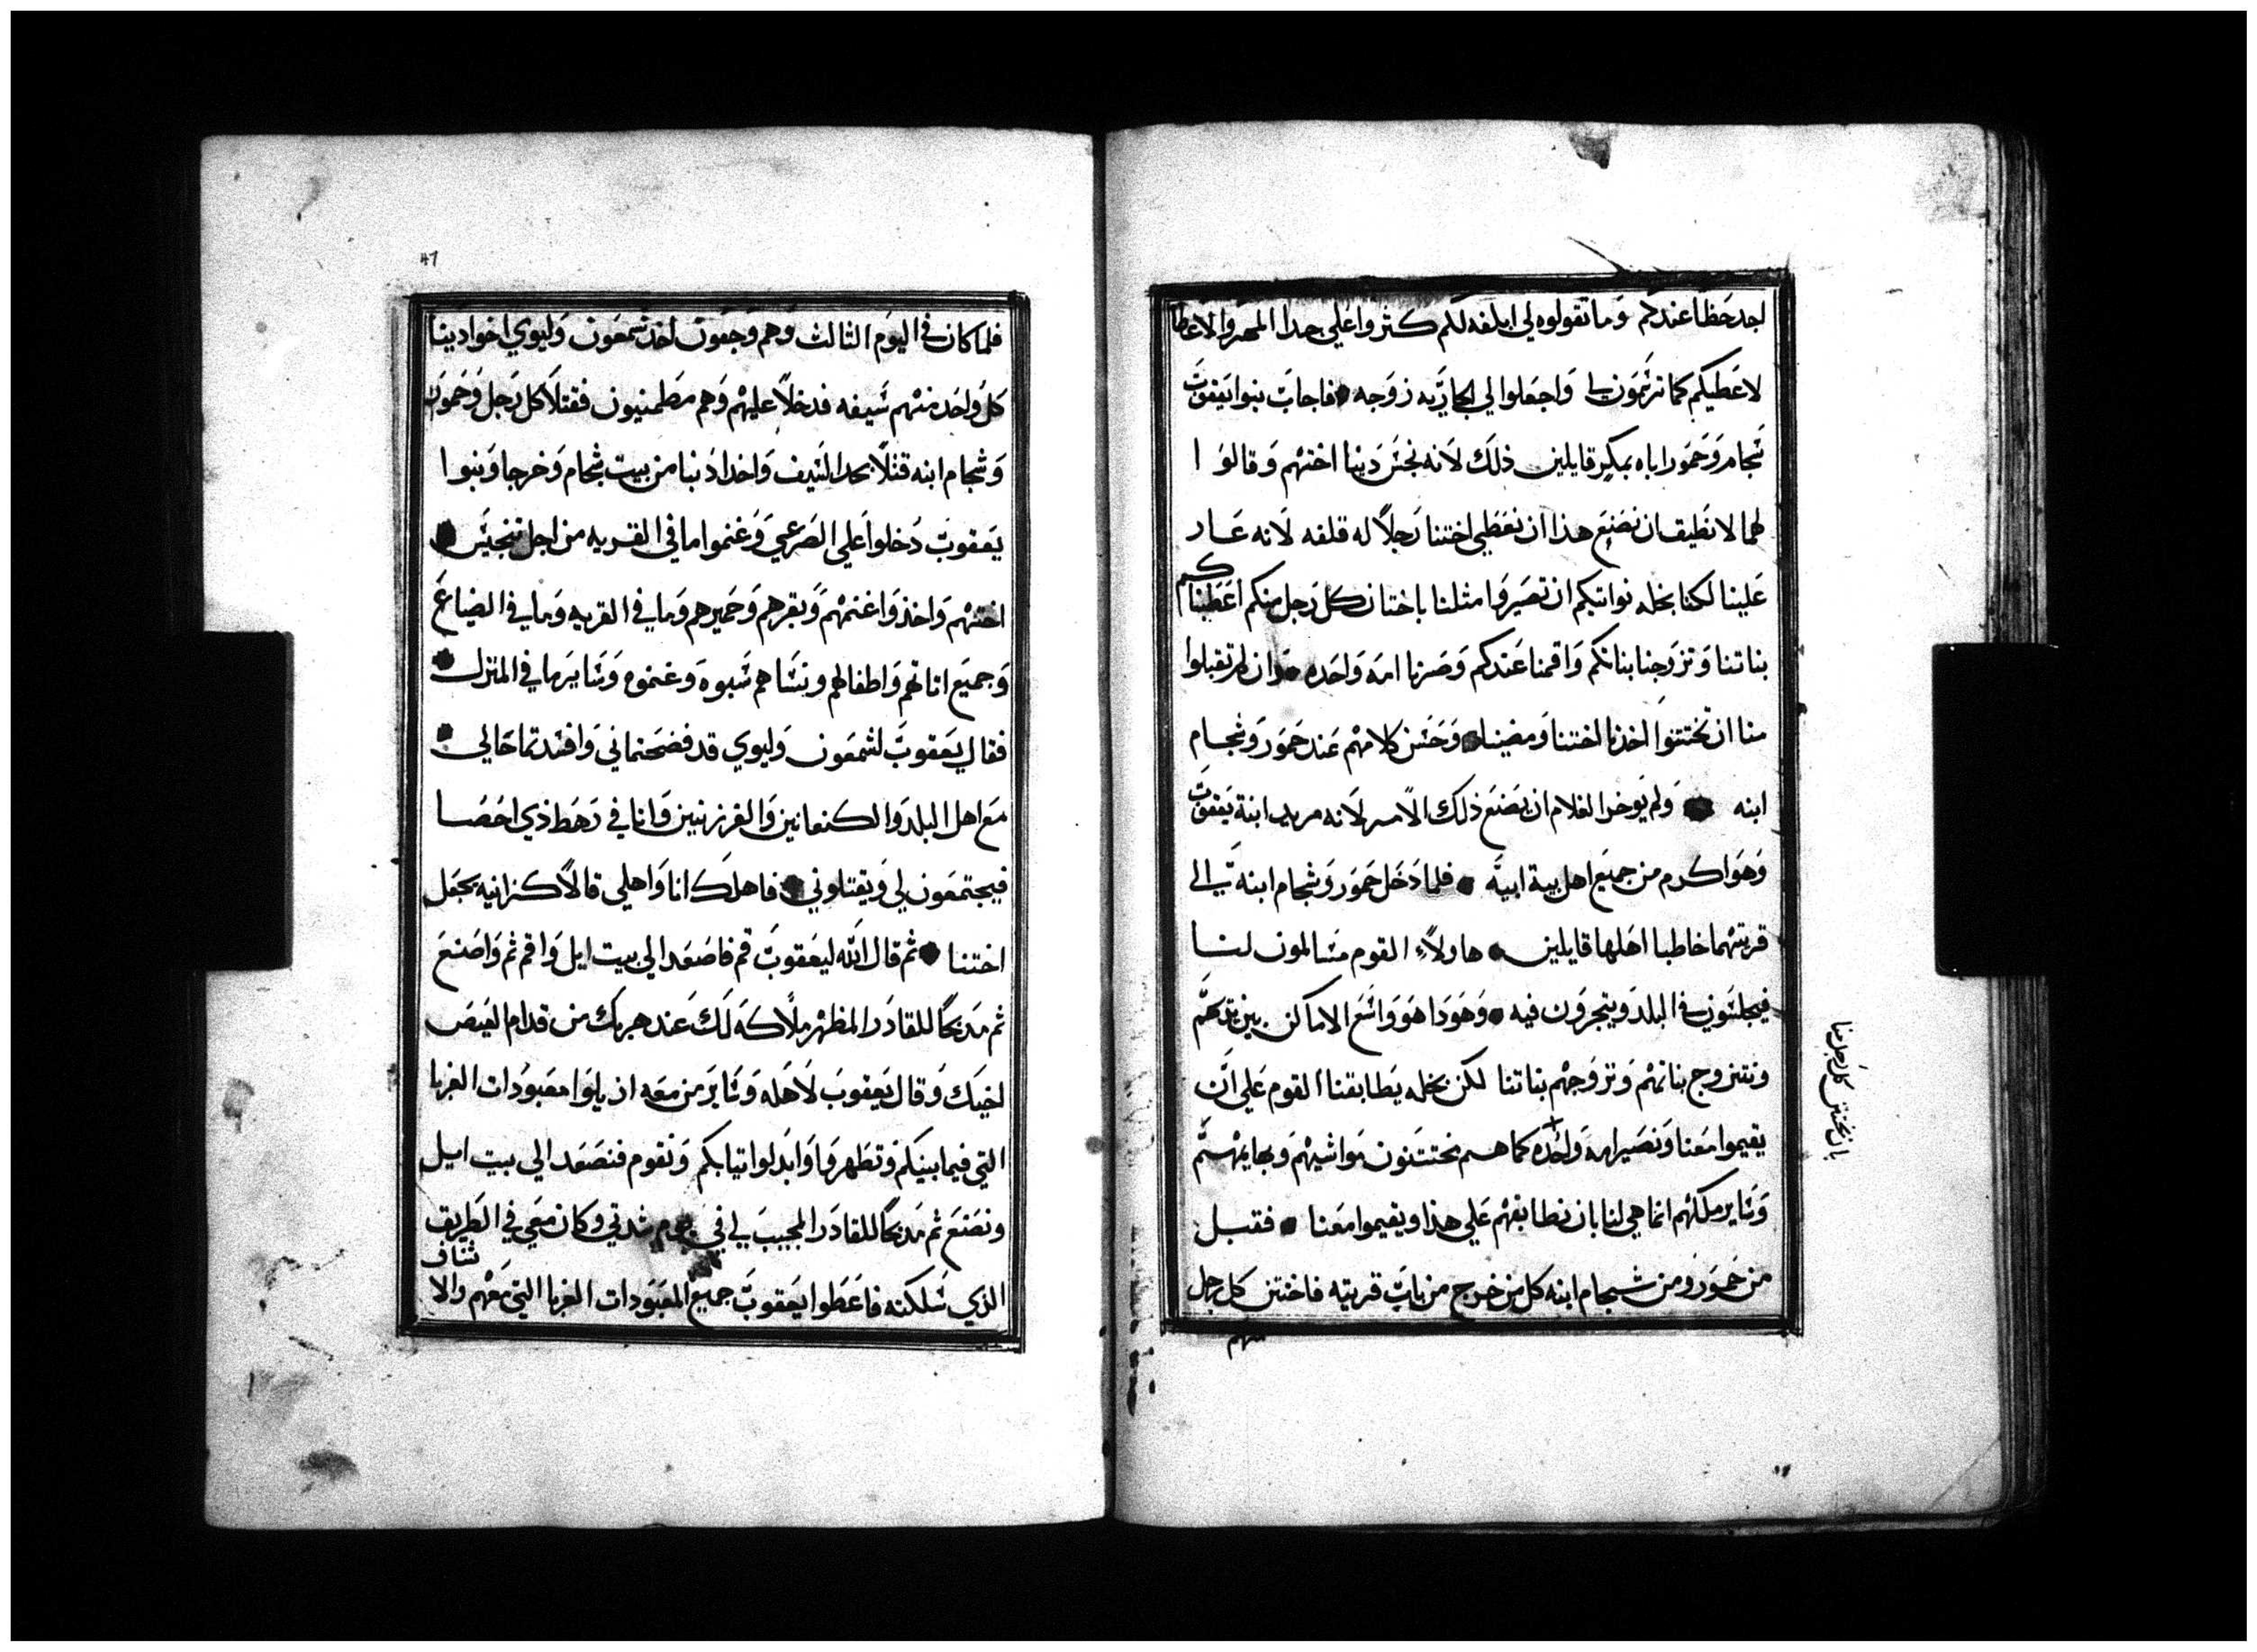 اجد حظا عندكم وما تقولوه لي ابلغه لكم كثروا علي جدا المهر والاعطا
لاعطيكم كما ترسمون لي واجعلوا لي الجاريه زوجه فاجاب بنوا يعقوب
شجام وحمور اباه بمكر قايلين ذلك لانه نجس دينا اختهم وقالوا
لهما لا نطيق ان نصنع هذا ان نعطي اختنا رجلا له قلفه لانه عار
علينا لكنا بخله نواتيكم ان تصيروا مثلنا باختان كل رجل منكم اعطيناكم
بناتنا وتزوجنا بناتكم واقمنا عندكم وصرنا امه واحده وان لم تقبلوا
منا ان تختتنوا اخذنا اختنا ومضينا وحسن كلامهم عند حمور وشجام
ابنه ولم يوخر الغلام ان يصنع ذلك الامر لانه مريد ابنة يعقوب
وهو اكرم من جميع اهل بيت ابيه فلما دخل حمور وشجام ابنه الي
قريتهما خاطبا اهلها قايلين هاولاء القوم مسالمون لنا
فيجلسون في البلد ويتجرون فيه وهو دا هو واسع الاماكن بين يديهم
ونتزوج بناتهم وتزوجهم بناتنا لكن بخله يطابقنا القوم علي ان
يقيموا معنا ونصير امه واحده كما هم مختتنون مواشيهم وبهايمهم
بان يختتن كل رجل منا
وساير ملكهم انما هي لنا بان نطابقهم علي هذا ويقيموا معنا فقبل
من حمور ومن شجام ابنه كل من خرج من باب قريته فاختتن كل رجل
منهم
47
فلما كان في اليوم الثالث وهم وجعون اخذ شمعون وليوي اخوا دينا
كل واحد منهم سيفه فدخلا عليهم وهم مطمنيون فقتلا كل رجل وحمور
وشجام ابنه قتلا بحد السيف واخدا دنيا من بيت شجام وخرجا وبنوا
يعقوب دخلوا علي الصرعي وغنموا ما في القريه من اجل تنجيس
اختهم واخذوا غنمهم وبقرهم وحميرهم وما في القريه وما في الضياع
وجميع اناتهم واطفالهم ونساهم سبوه وغنموه وساير ما في المنزل
فقال يعقوب لشمعون وليوي قد فضحتماني وافسدتما حالي
مع اهل البلد والكنعانين والفرزنيين وانا في رهط ذي احصا
فيجتمعون لي ويقتلوني فاهلك انا واهلي قالا كزانيه يجعل
اختنا ثم قال الله ليعقوب قم فاصعد الي بيت ايل واقم ثم واصنع
ثم مدبحا للقادر المظهر ملاكه لك عند هربك من قدام العيص
اخيك وقال يعقوب لاهله وساير من معه ازيلوا معبودات الغربا
التي فيما بينكم وتطهروا وابدلوا تيابكم ونقوم فنصعد الي بيت ايل
ونصنع ثم مدبحا للقادر المجيب لي في يوم شدتي وكان معي في الطريق
الذي سلكته فاعطوا يعقوب جميع المعبودات الغربا التي معهم والاشناف